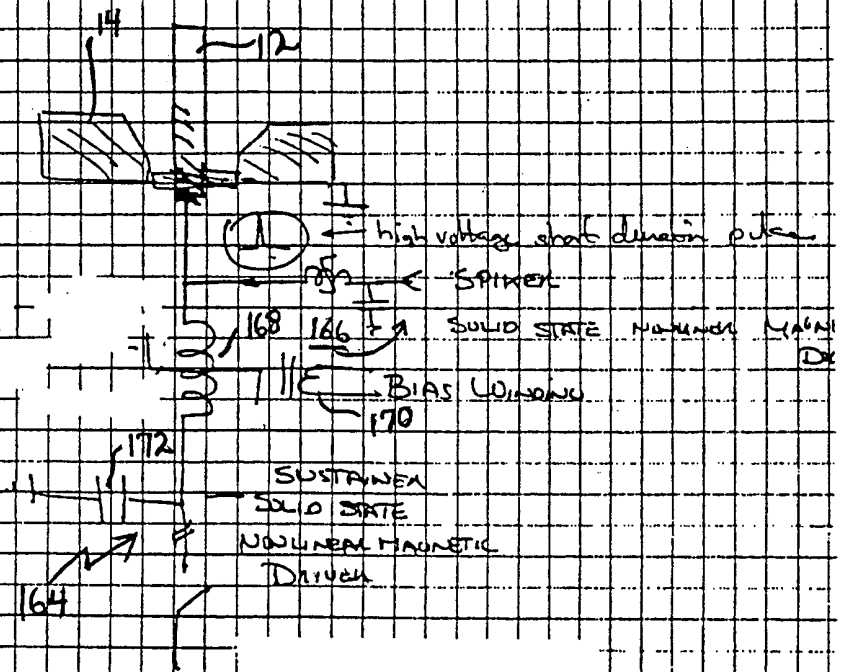 14
12
high voltage short duration pulse
SPIKER
168
166
SOLID STATE NONLINEAR MAGN
BIAS WINDING
170
172
SUSTAINER
SOLID STATE
NONLINEAR MAGNETIC
DRIVER
164